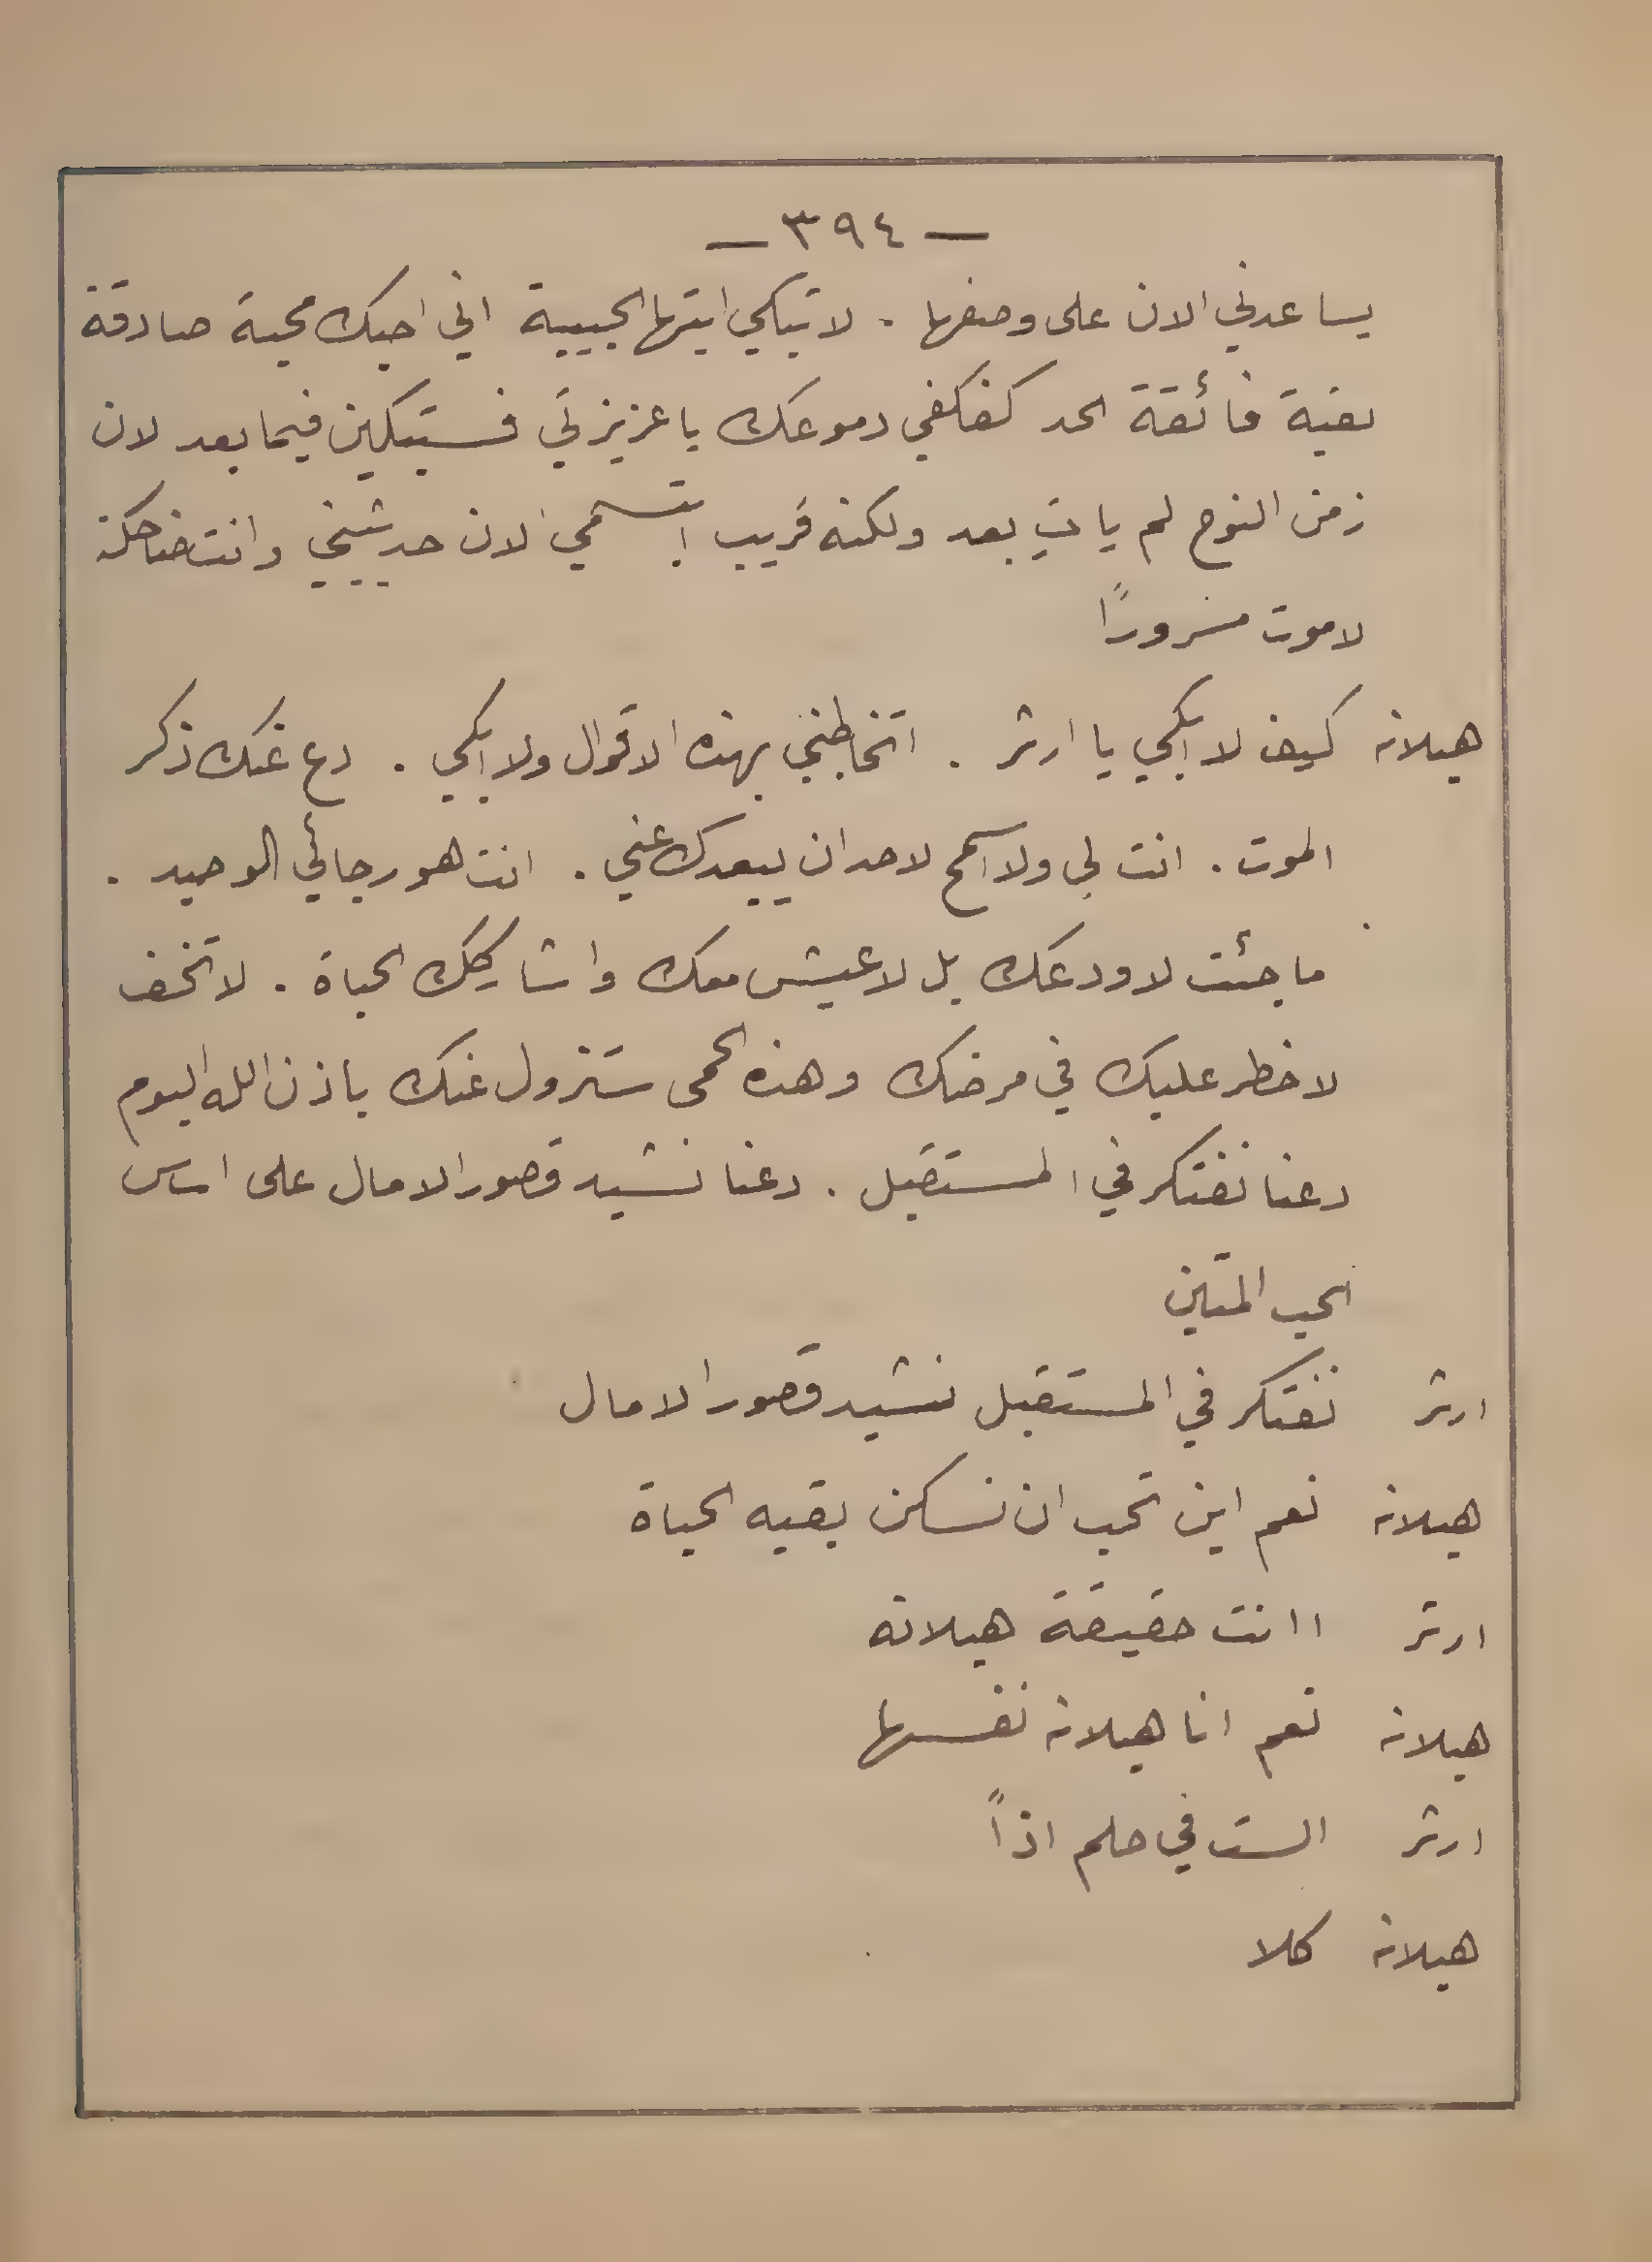 — ٣٩٤ —
يساعدني الان على وصفها . لا تبكي ايتها الحبيبة اني احبك محبة صادقة
نقية فائقة الحد كفكفي دموعك يا عزيزتي فستبكين فيما بعد لان
زمن النوح لم يات بعد ولكنه قريب ابتسمي الان حدثيني وانت ضاحكة
لاموت مسرورًا
هيلانه كيف لا ابكي يا ارثر . اتخاطبني بهذه الاقوال ولا ابكي . دع عنك ذكر
الموت . انت لي ولا اسمح لاحد ان يبعدك عني . انت هو رجائي الوحيد .
ما جئت لاودعك بل لاعيش معك واشاركك الحياة . لا تخف
لا خطر عليك في مرضك وهذه الحمى ستزول عنك باذن الله اليوم
دعنا نفتكر في المستقبل . دعنا نشيد قصور الامال على اساس
الحب المتين
ارثر نفتكر في المستقبل نشيد قصور الامال
هيلانه نعم اين تحب ان نسكن بقيه الحياة
ارثر اانت حقيقة هيلانه
هيلانه نعم انا هيلانه نفسها
ارثر الست في حلم اذاً
هيلانه كلا